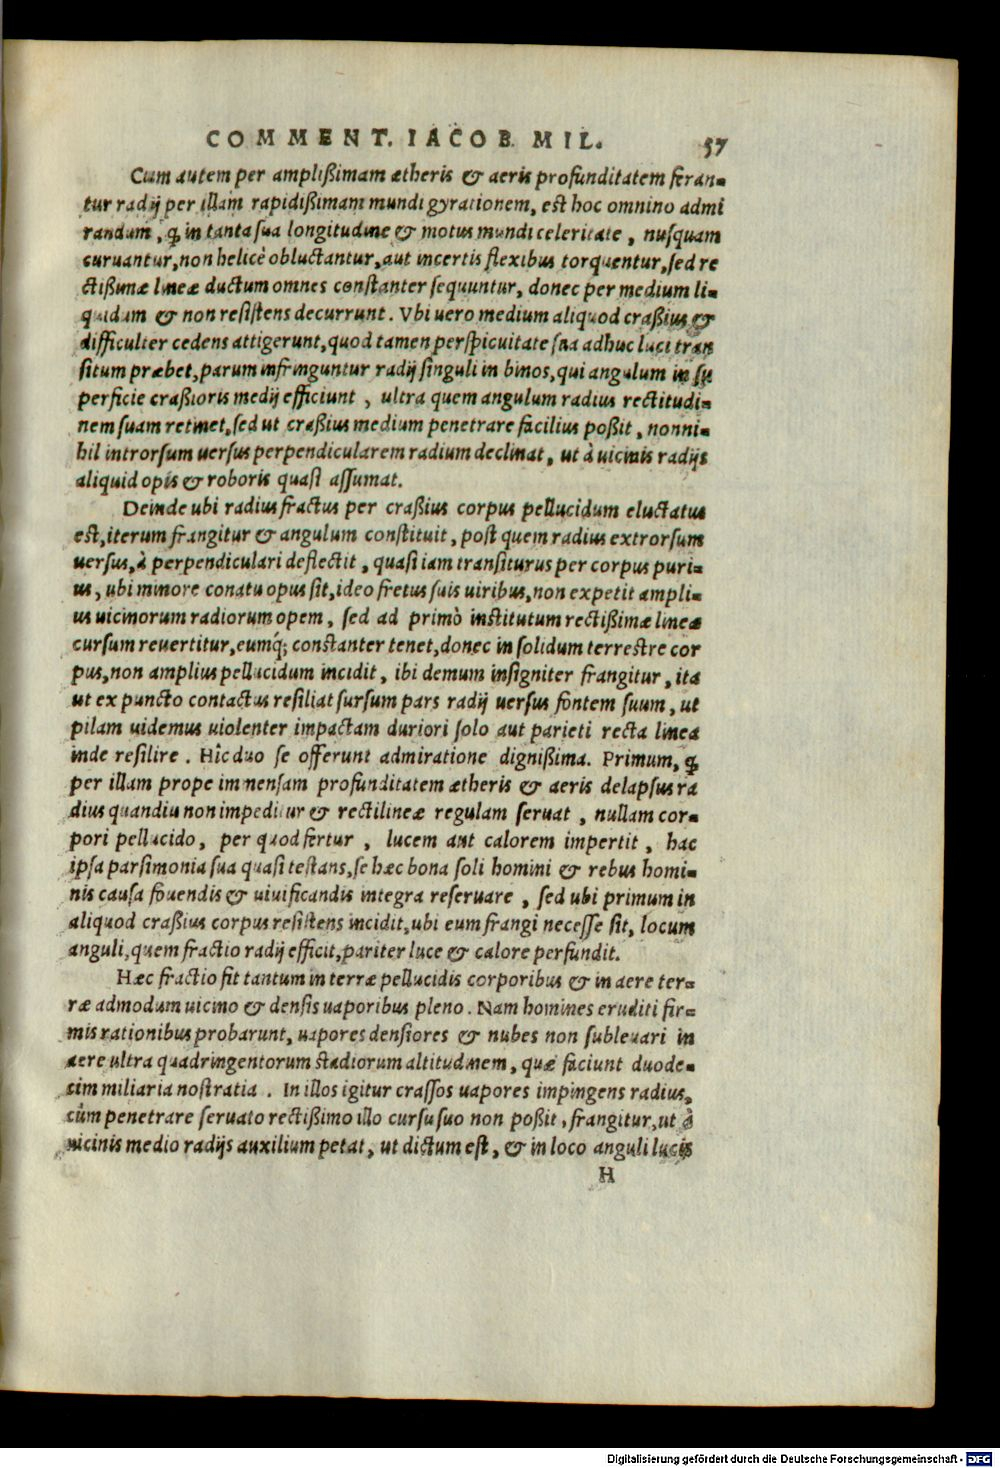 COMMENT. IACOB. MIL. 57
Cum autem per amplißimam ætheris & aeris profunditatem feran-
tur radij per illam rapidißimam mundi gyrationem, est hoc omnino admi
randum, ꝙ in tanta sua longitudine & motus mundi celeritate, nusquam
curuantur, non helicè obluctantur, aut incertis flexibus torquentur, sed re
ctißimæ lineæ ductum omnes constanter sequuntur, donec per medium li-
quidum & non resistens decurrunt. Vbi uero medium aliquod craßius &
difficulter cedens attigerunt, quod tamen perspicuitate sua adhuc luci tran
situm præbet, parum infringuntur radij singuli in binos, qui angulum in su
perficie craßioris medij efficiunt, ultra quem angulum radius rectitudi-
nem suam retinet, sed ut craßius medium penetrare facilius poßit, nonni-
hil introrsum uersus perpendicularem radium declinat, ut à uicinis radijs
aliquid opis & roboris quasi assumat.
Deinde ubi radius fractus per craßius corpus pellucidum eluctatus
est, iterum frangitur & angulum constituit, post quem radius extrorsum
uersus, à perpendiculari deflectit, quasi iam transiturus per corpus puri-
us, ubi minore conatu opus sit, ideo fretus suis uiribus, non expetit ampli-
us uicinorum radiorum opem, sed ad primò institutum rectißimæ lineæ
cursum reuertitur, eumq́; constanter tenet, donec in solidum terrestre cor
pus, non amplius pellucidum incidit, ibi demum insigniter frangitur, ita
ut ex puncto contactus resiliat sursum pars radij uersus fontem suum, ut
pilam uidemus uiolenter impactam duriori solo aut parieti recta linea
inde resilire. Hîc duo se offerunt admiratione dignißima. Primum, ꝙ
per illam prope immensam profunditatem ætheris & aeris delapsus ra
dius quandiu non impeditur & rectilineæ regulam seruat, nullam cor-
pori pellucido, per quod fertur, lucem aut calorem impertit, hac
ipsa parsimonia sua quasi testans, se hæc bona soli homini & rebus homi-
nis causa fouendis & uiuificandis integra reseruare, sed ubi primum in
aliquod craßius corpus resistens incidit, ubi eum frangi necesse sit, locum
anguli, quem fractio radij efficit, pariter luce & calore perfundit.
Hæc fractio fit tantum in terræ pellucidis corporibus & in aere ter-
ræ admodum uicino & densis uaporibus pleno. Nam homines eruditi fir-
mis rationibus probarunt, uapores densiores & nubes non subleuari in
aere ultra quadringentorum stadiorum altitudinem, quæ faciunt duode-
cim miliaria nostratia. In illos igitur crassos uapores impingens radius,
cùm penetrare seruato rectißimo illo cursu suo non poßit, frangitur, ut à
uicinis medio radijs auxilium petat, ut dictum est, & in loco anguli lucis
H
Digitalisierung gefördert durch die Deutsche Forschungsgemeinschaft - DFG